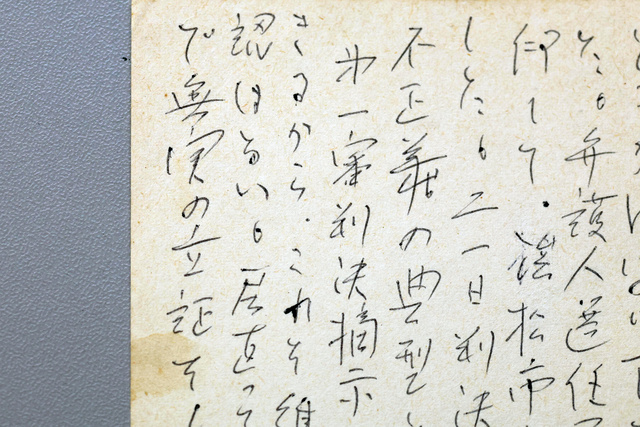 た。弁護人選任
して、松市
した。二一日判決
不正義の典型
第一審判決摘示
きるから、これを維
認はない。居直って
で無実の立証をし